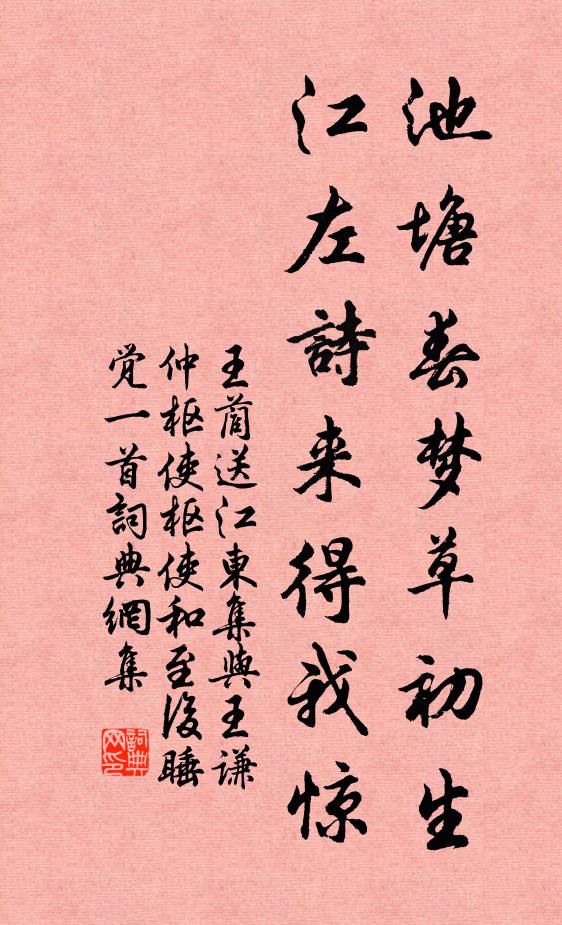 池塘春梦草初生
江左詩来得我惊
王送江東集與王謙
仲枢使枢使和至後睡
觉一首詞典網集
詞典
网印